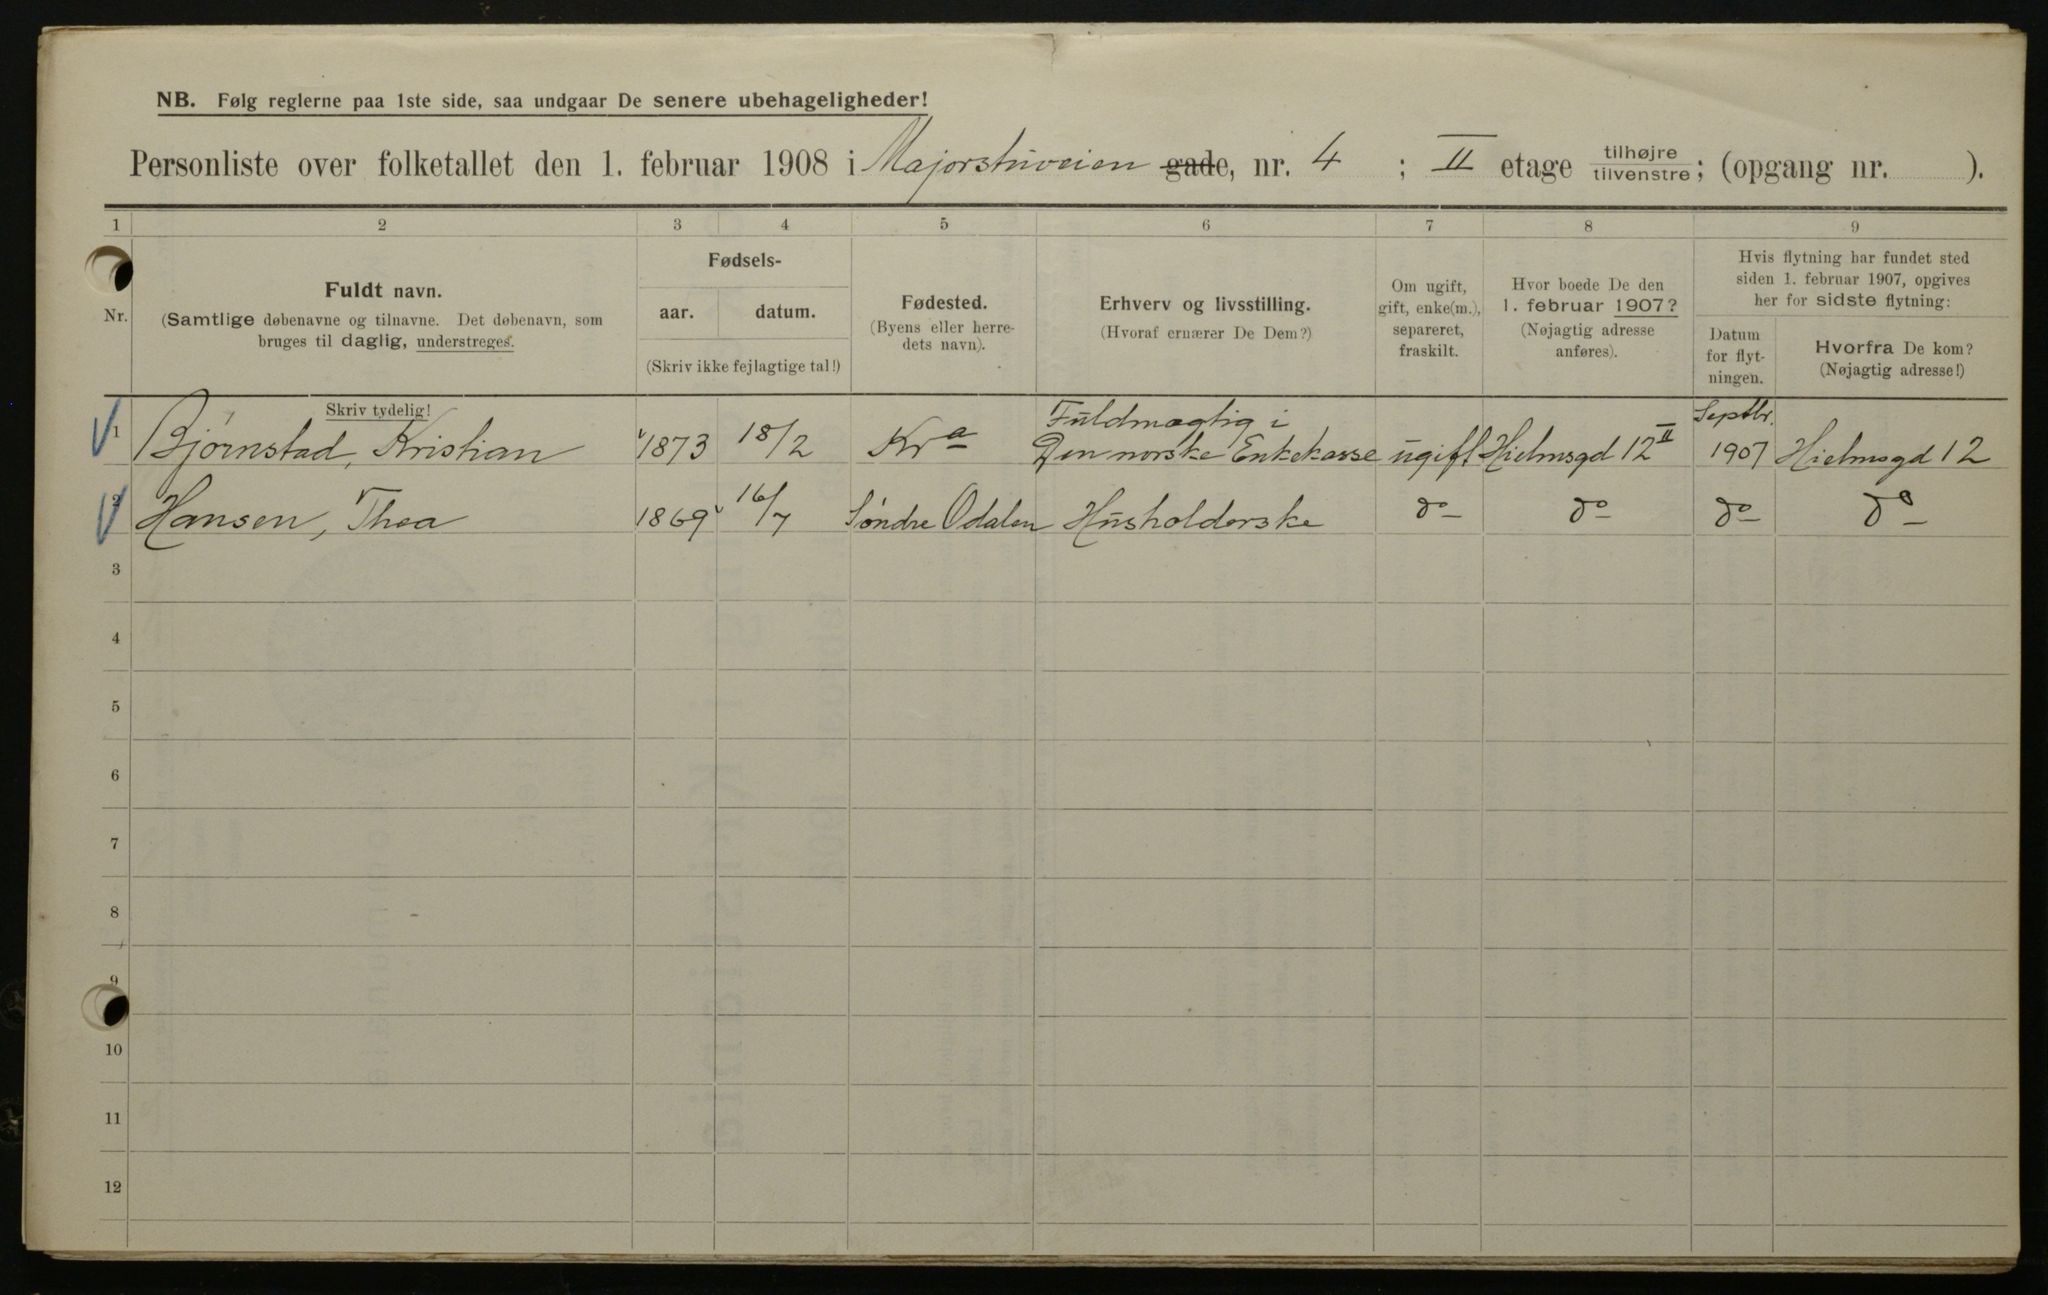 NB. Følg reglerne paa 1ste side, saa undgaar De senere ubehageligheder!
Personliste over folketallet den 1. februar 1908 i Majorstuveien gade, nr. 4 ; II etage tilhøjre tilvenstre; (opgang nr. ).
1 2 3 4 5 6 7 8 9
Nr.
Fuldt navn.
(Samtlige døbenavne og tilnavne. Det døbenavn, som
bruges til daglig, understreges.
Fødsels-
aar. datum.
(Skriv ikke fejlagtige tal!)
Fødested.
(Byens eller herre-
dets navn).
Erhverv og livsstilling.
(Hvoraf ernærer De Dem?)
Om ugift,
gift, enke(m.),
separeret,
fraskilt.
Hvor boede De den
1. februar 1907?
(Nøjagtig adresse
anføres).
Hvis flytning har fundet sted
siden 1. februar 1907, opgives
her for sidste flytning:
Datum
for flyt-
ningen.
Hvorfra De kom?
(Nøjagtig adresse!)
Skriv tydelig!
1 Bjørnstad, Kristian 1873 18/2 Kra Fuldmægtig i Den norske Enkekasse ugift Hielmsgd 12 II Septbr. 1907 Hielmsgd 12
2 Hansen, Thea 1869 16/7 Søndre Odalen Husholderske do do do do
3
4
5
6
7
8
9
10
11
12